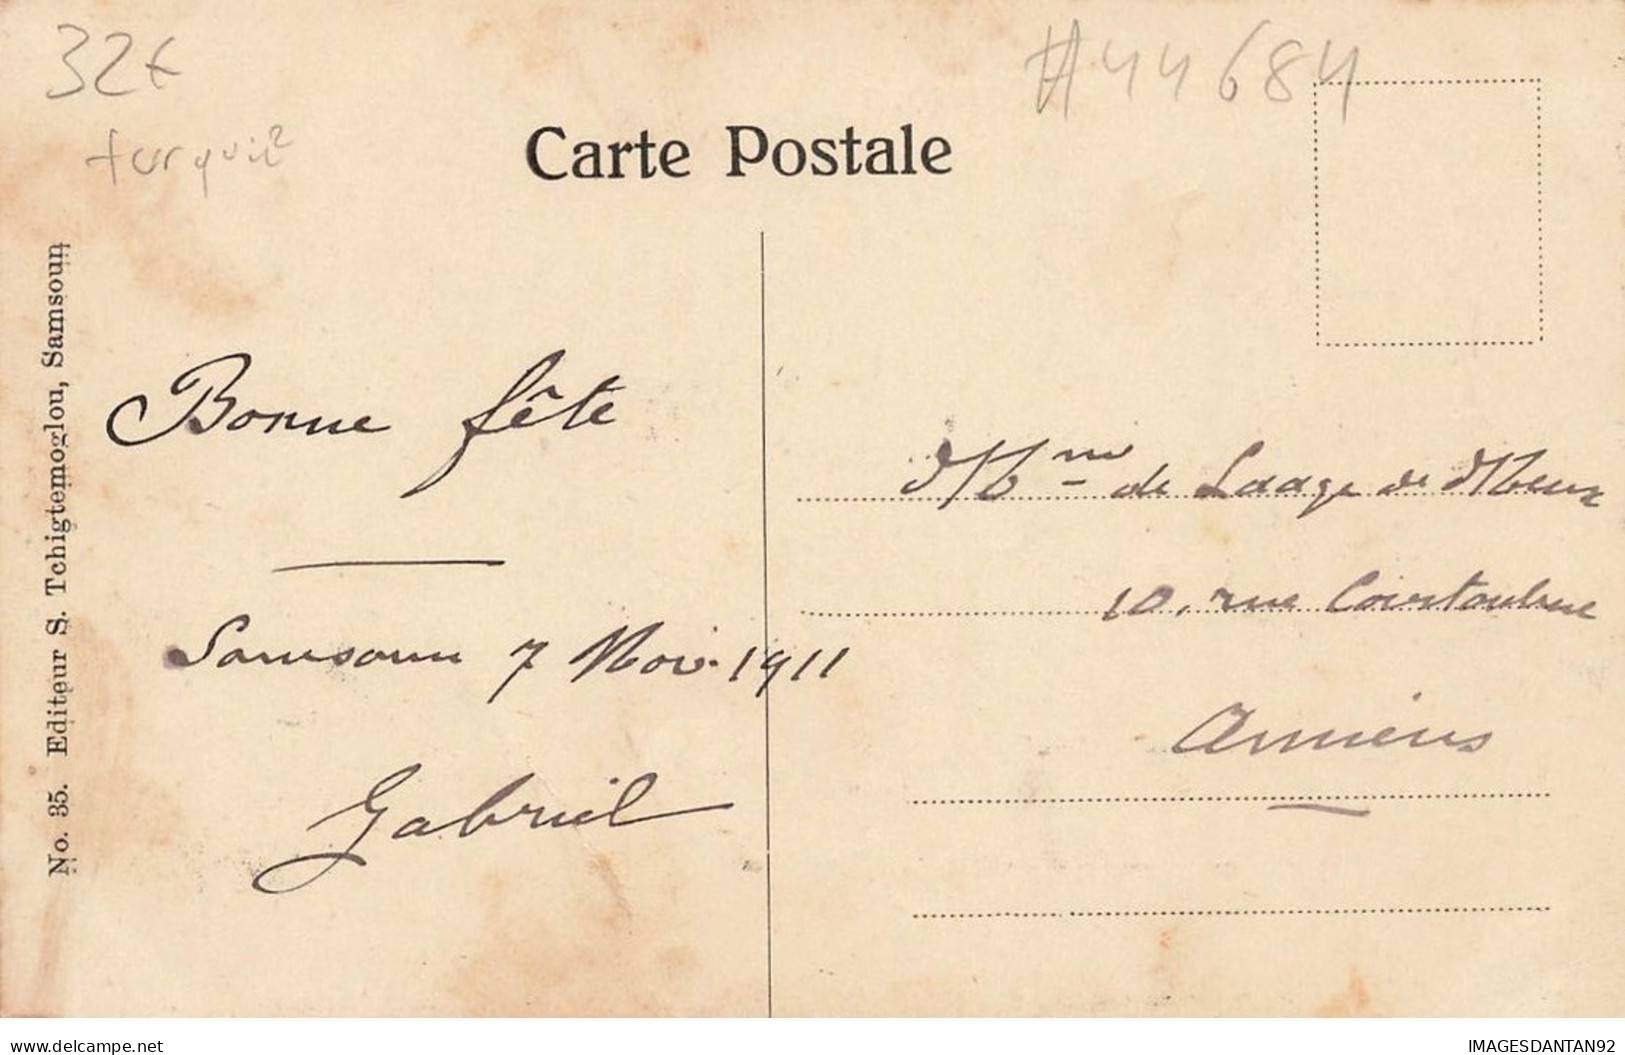 32€
turquie
#44684
Carte Postale
No. 35. Editeur S. Tchigtemoglou, Samsoun
Bonne fête
Samsoun 7 Nov. 1911
Gabriel
Mme de Laage de Meux
10, rue
Amiens
delcampe.net
IMAGESDANTAN92